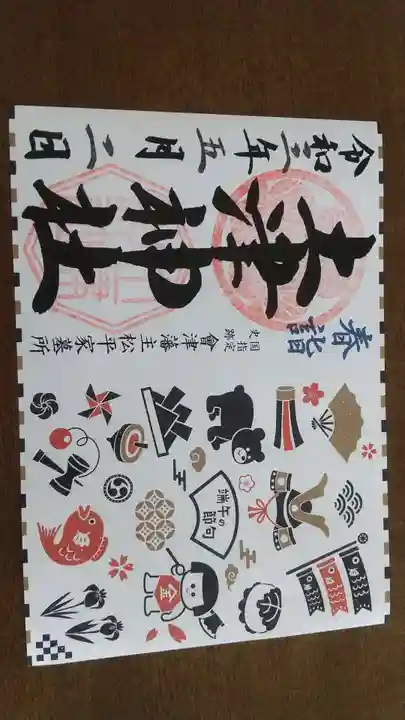 端午の節句
金
春詣
国指定
史跡
會津藩主松平家墓所
土津神社
令和三年五月二日